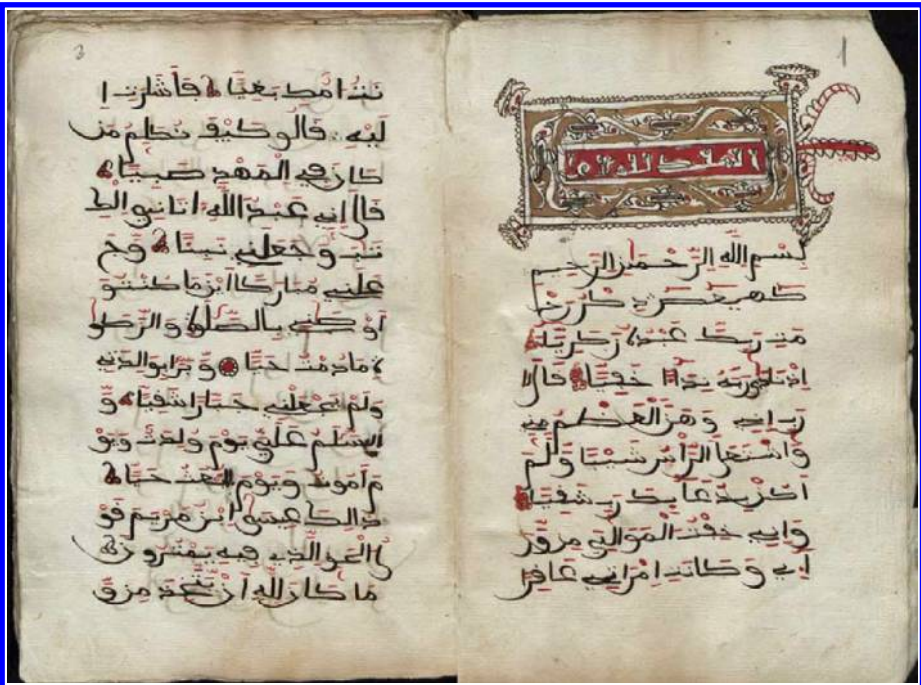 1
الملك لله
بسم الله الرحمن الرحيم
كهيعص ذكر رح
مت ربك عبده زكرياء
اذ نادى ربه نداء خفيا قال
رب اني وهن العظم مني
واشتعل الرأس شيبا ولم
اكن بدعائك رب شقيا
واني خفت الموالي من ور
آءي وكانت امرأتي عاقر
3
نت امك بغيا فأشارت ا
ليه قالو كيف نكلم من
كان في المهد صبيا
قال اني عبد الله اتاني الك
تب وجعلني نبيئا وج
علني مباركا اين ما كنت و
اوصني بالصلوة والزكو
ة ما دمت حيا وبرا بوالدتي
ولم يجعلني جبارا شقيا و
السلم علي يوم ولدت ويو
م اموت ويوم ابعث حيا
ذالك عيسى ابن مريم قو
ل الحق الذي فيه يمترون
ما كان لله ان يتخذ من و